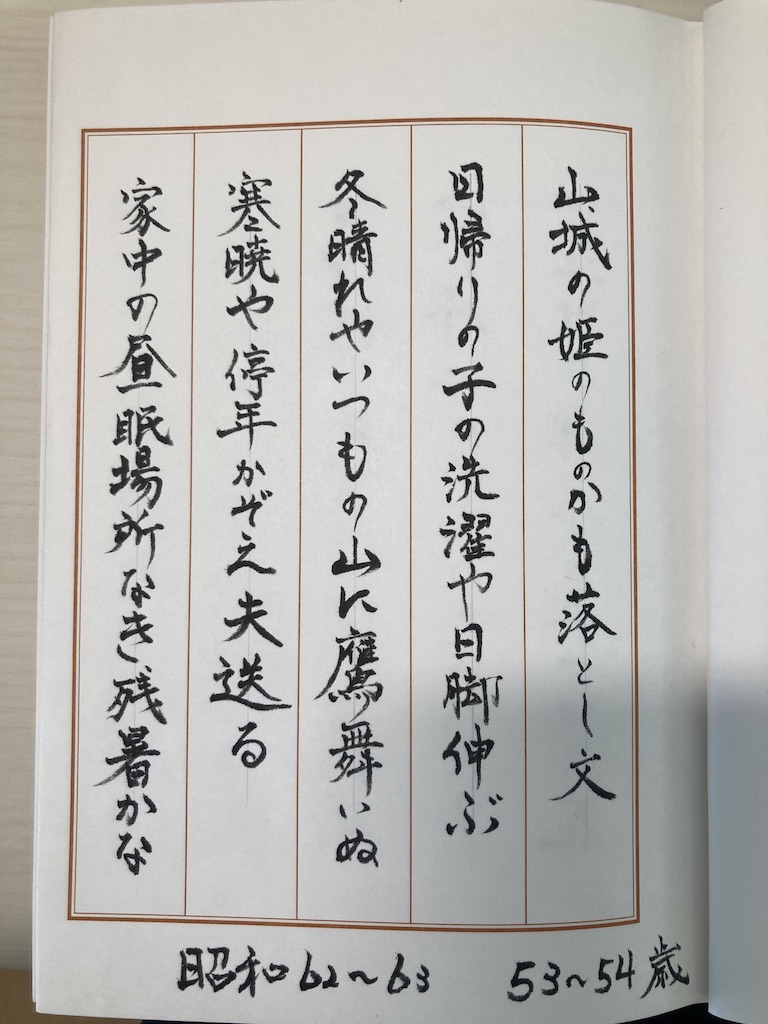 山城の姫のものかも落とし文
日帰りの子の洗濯や日脚伸ぶ
冬晴れやいつもの山に鷹舞いぬ
寒暁や停年かぞえ夫送る
家中の昼眠場所なき残暑かな
昭和62〜63　53〜54歳